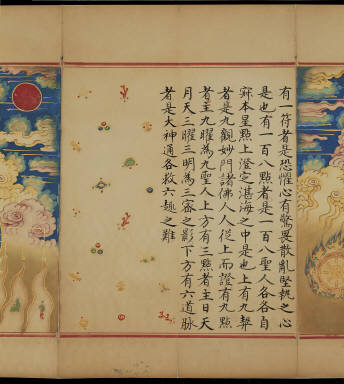 有一符者是恐懼心有驚畏散亂堅執之心
是也有一百八點者是一百八聖人各各自
寂本呈點上澄定湛海之中是也上有九聖
者是九觀妙門諸佛人人從上而證有九點
者主九曜為九聖人上方有三點者主日天
月天三曜三明為三審之影下方有六道脉
者是大神通各救六趣之難